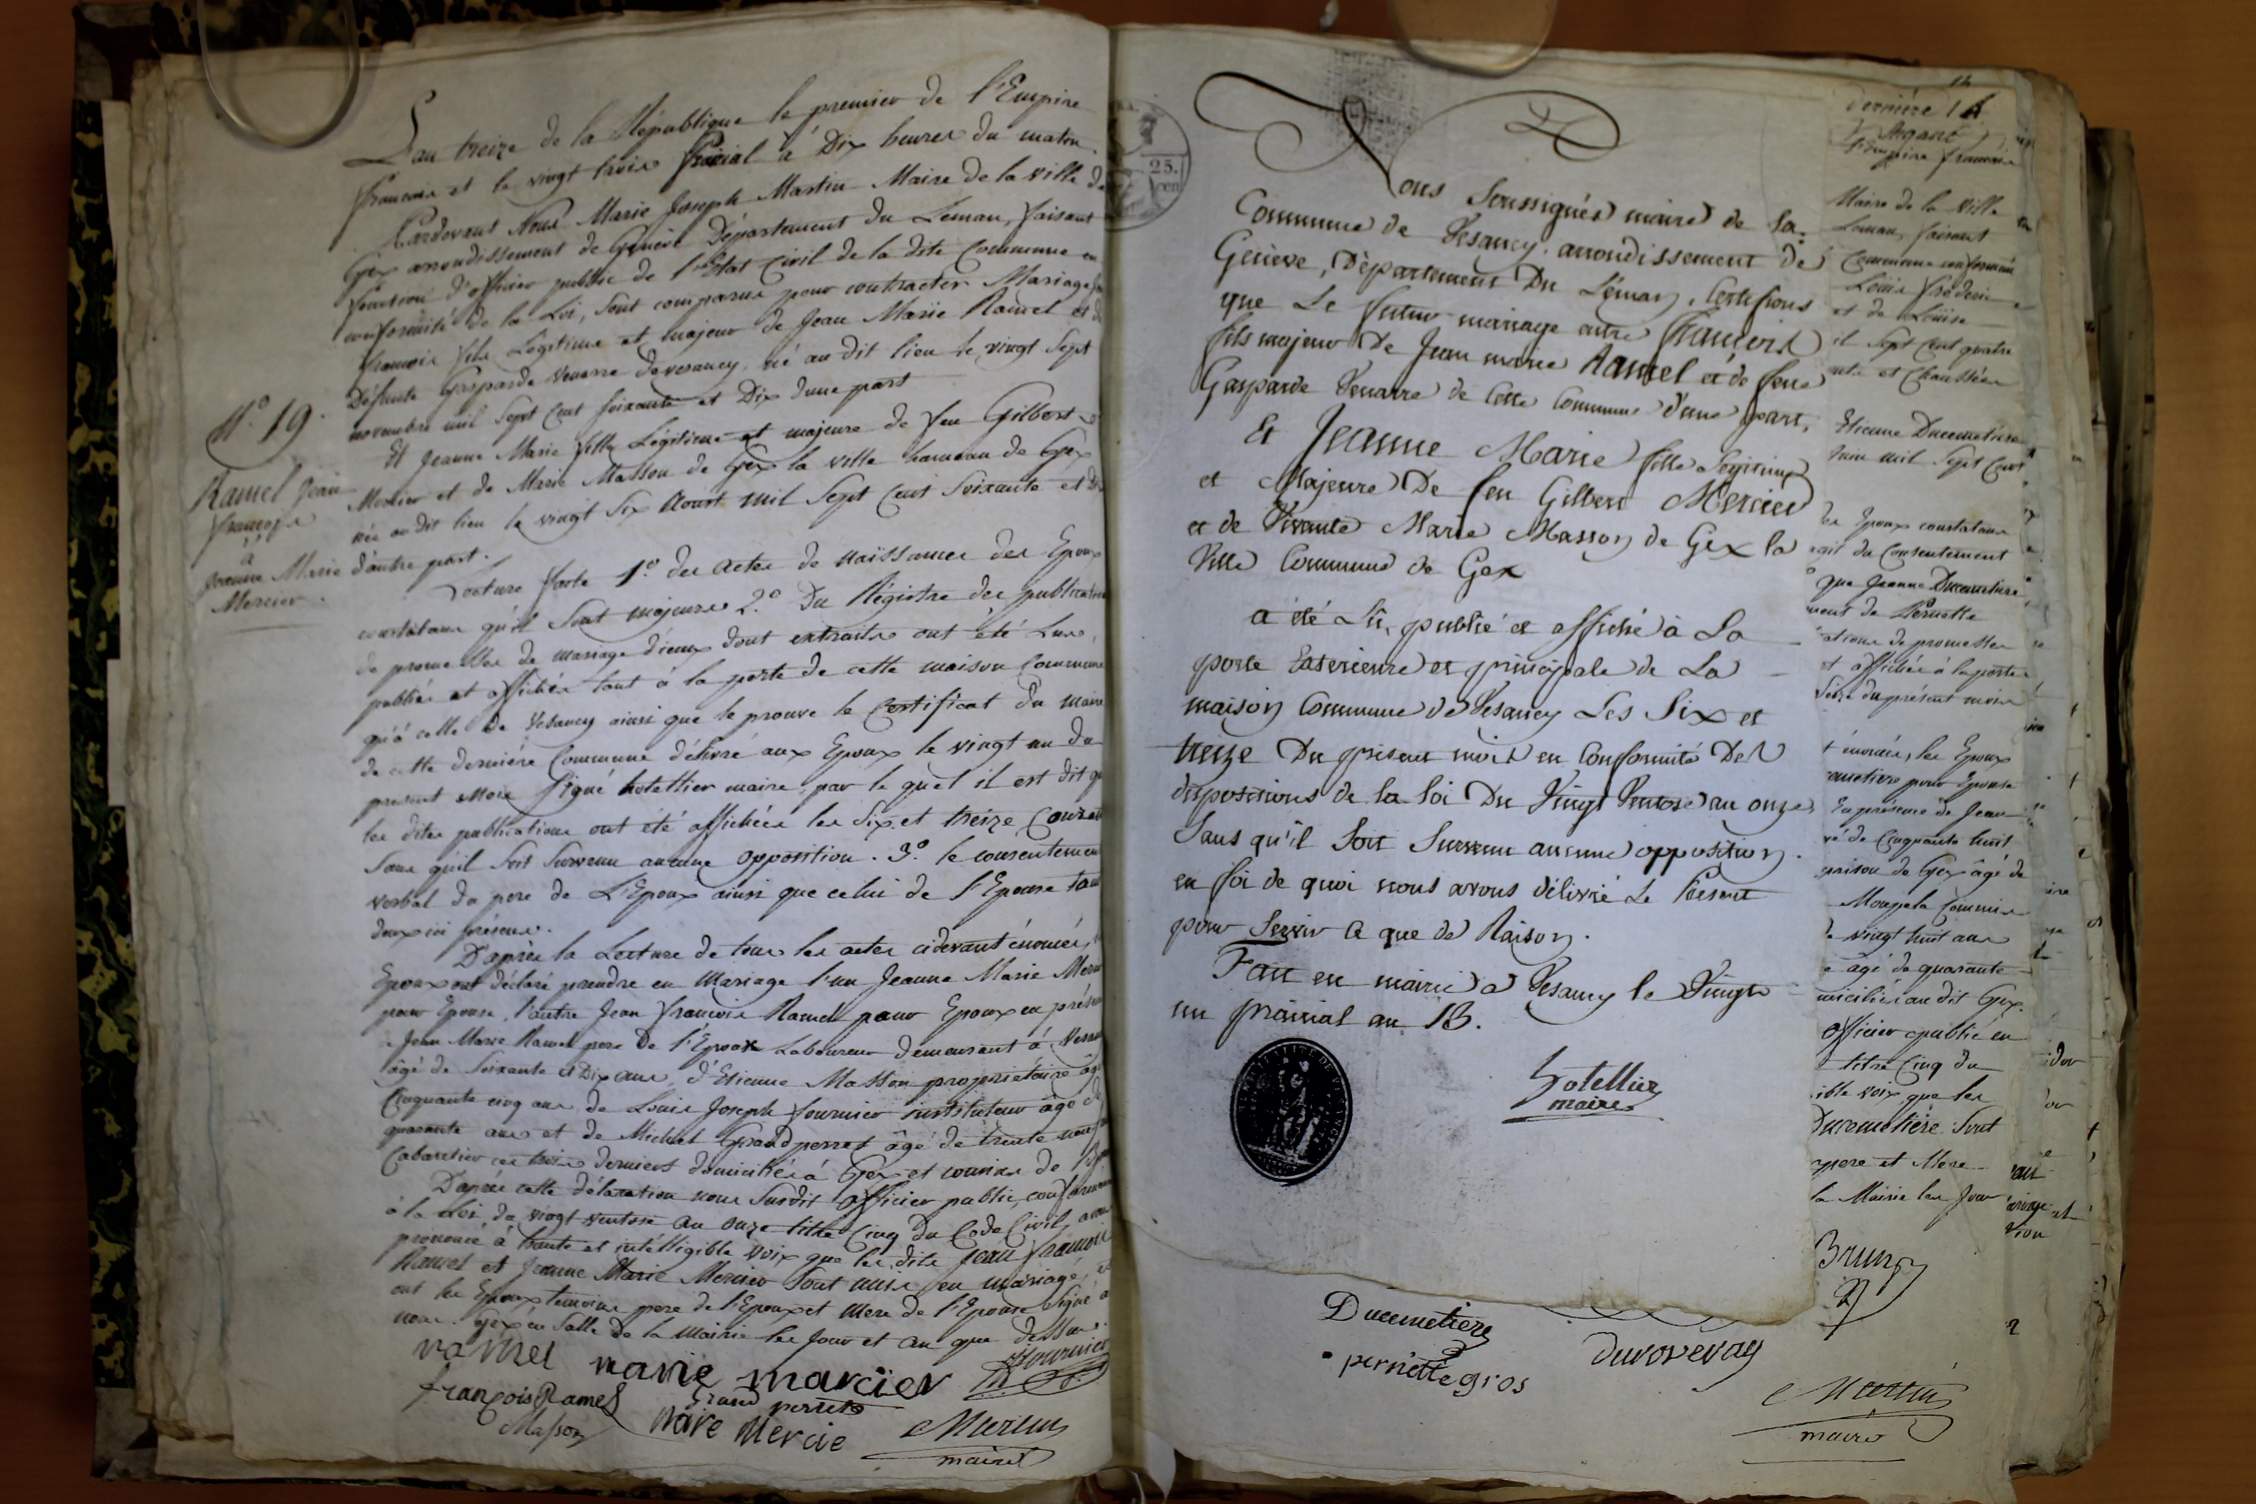 L'an treize de la République le premier de l'Empire
francois et le vingt trois Prairial à Dix heures du matin.
Pardevant Nous Marie Joseph Martin Maire de la ville de
Gex arrondissement de Genève Département du Leman, faisant
fonction d'officier public de l'Etat Civil de la dite Commune en
conformité de la Loi, sont comparus pour contracter Mariage
francois fils Légitime et majeur de Jean Marie Ramel et de
Défunte Gasparde Venarre de vesancy, né au dit lieu le vingt Sept
novembre mil Sept Cent Soixante et Dix d'une part
N°. 19.
Ramel Jean
françois
à
Jeanne Marie
Mercier.
Et Jeanne Marie fille Légitime et majeure de feu Gilbert
Mercier et de Marie Masson de Gex la ville hameau de Gex
née au dit lieu le vingt Six Aoust mil Sept Cent Soixante et
d'autre part.
Lecture faite 1.° des Actes de naissance des Epoux
constatans qu'ils sont majeurs 2.° Du Régistre des publications
de promesses de mariage d'ieux dont extraits ont été Lus,
publiés et affichés tant à la porte de cette maison Commune
qu'à celle de Vesancy ainsi que le prouve le Certificat du maire
de cette derniére Commune délivré aux Epoux le vingt un du
présent mois Signé hotellier maire, par le quel il est dit que
les dites publications ont été affichées les Six et treize Courant
Sans quil soit survenu aucune Opposition. 3.° le consentement
verbal du pere de L'Epoux ainsi que celui de l'Epouse tous
deux ici présens.
D'après la Lecture de tous les actes cidevant énoncés,
Epoux ont déclaré prendre en Mariage l'un Jeanne Marie
pour Epouse, l'autre Jean francois Ramel pour Epoux en
Jean Marie Ramel pere de l'Epoux Laboureur demeurant à
âgé de Soixante et Dix ans, d'Etienne Masson propriétaire
Cinquante cinq ans de Louis Joseph fournier instituteur âgé de
quarante ans et de Michel Grandperret âgé de trente
Cabaretier ces trois derniers domiciliés à Gex et
D'après cette déclaration nous Susdit Officier public, conformément
à la Loi du vingt ventose an onze titre Cinq du Code Civil, avons
prononcé à haute et intelligible voix que les dits Jean francois
Ramel et Jeanne Marie Mercier Sont unis en mariage, et
ont les Epoux, temoins pere de l'Epoux et Mere de l'Epouse signé
nous. Gex en Salle de la Mairie les Jour et an que dessus.
ramel marie marcier fournier
françois Ramel Grand perret
Masson Mercie Martin
maire
25.
cen
Nous Soussignés maire de la
Commune de Vesancy, arrondissement de
Genève, Département Du Léman, Certifions
que Le futur mariage entre François
fils majeur De Jean marie Ramel et de feue
Gasparde Venarre de Cette Commune d'une part,
Et Jeanne Marie fille Légitime
et Majeure De feu Gilbert Mercier
et de Vivante Marie Masson de Gex la
Ville Commune de Gex
a été Lû, publié et affiché à La
porte Exterieure et principale de La
maison Commune de Vesancy Les Six et
treize Du présent mois en Conformité Des
dispositions de la loi Du Vingt Ventose an onze,
Sans qu'il Soit Survenu aucune opposition.
en foi de quoi nous avons délivré Le Présent
pour Servir a que de Raison.
Fait en mairie a Vesancy le Vingt
un prairial an 13.
hotellier
maire
derniére
Empire francais
Maire de la ville
Leman, faisant
Commune
Louis fréderic
et de Louise
il Sept Cent quatre
et Chaussée
Etienne Ducemetière
mil Sept Cent
les Epoux constatans
du Consentement
que Jeanne Ducemetière
de promesses
et affichés à la porte
Seize du présent mois
énoncés, les Epoux
pour Epouse
En présence de Jean
de Cinquante huit
maison de Gex âgé de
vingt huit ans
âgé de quarante
au dit Gex.
officier public en
titre Cinq du
ible voix que les
Ducemetière Sont
pere et Mere
la Mairie les Jour
Brun
Ducemetiere
pernette gros
duroveray
Martin
maire